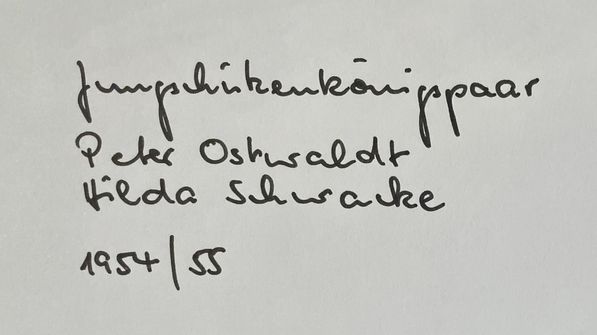 Jungschützenkönigspaar
Peter Ostwaldt
Hilda Schwacke
1954/55